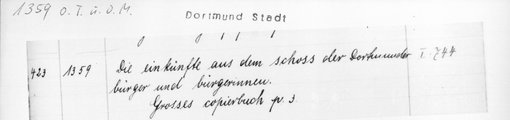 1359 O. T. u. O. M.
Dortmund Stadt
423 1359 Die einkünfte aus dem schoss der Dortmunder I. 744
bürger und bürgerinnen.
Grosses copierbuch p. 3.